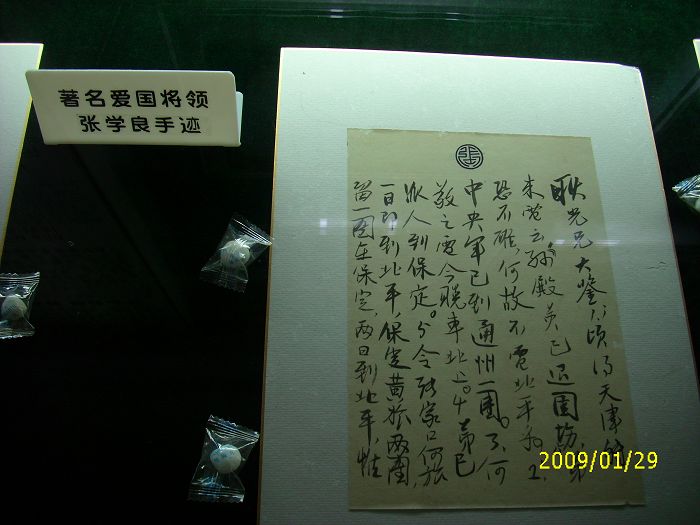 著名爱国将领
张学良手迹
耿光兄大鉴 顷得天津
来电云 孙殿英已返围场
恐不确，何故不电北平
中央军已到通州一团。3、何
敬之 今晚车北上。4 弟已
派人到保定。 令张家口何旅
一日即到北平，保定黄旅两团，
留一团在保定，两日到北平，惟
2009/01/29